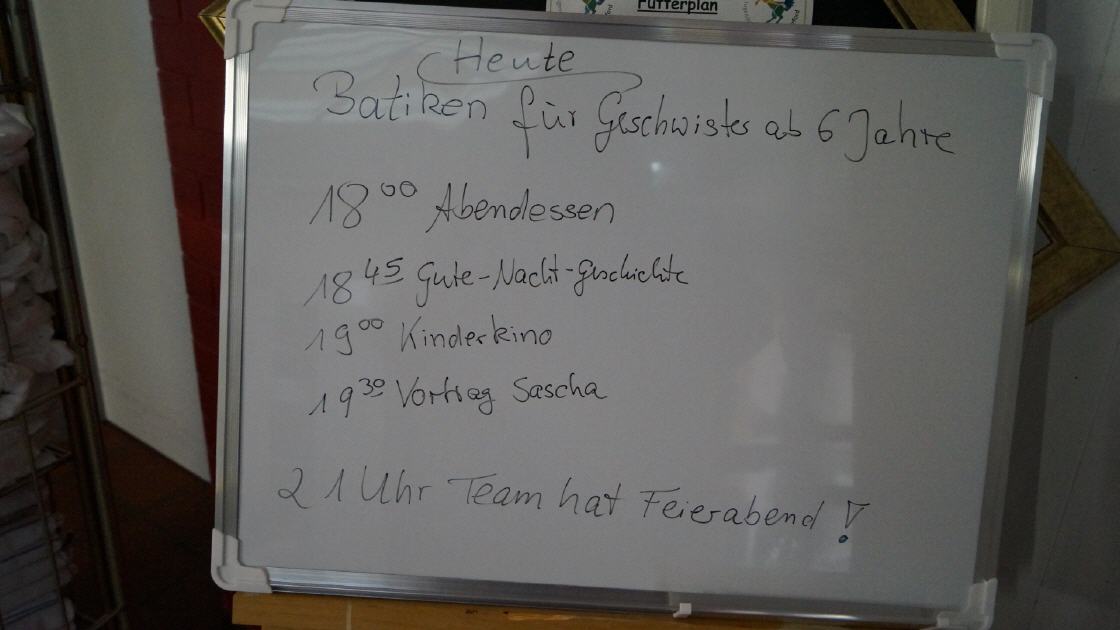 Futterplan
Heute
Batiken für Geschwister ab 6 Jahre
18⁰⁰ Abendessen
18⁴⁵ Gute-Nacht-Geschichte
19⁰⁰ Kinderkino
19³⁰ Vortrag Sascha
21 Uhr Team hat Feierabend!